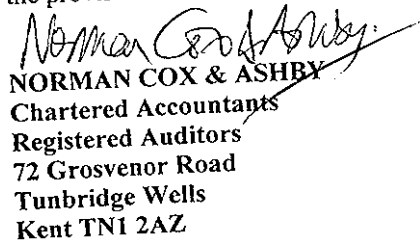 Norman Cox & Ashby.
NORMAN COX & ASHBY
Chartered Accountants
Registered Auditors
72 Grosvenor Road
Tunbridge Wells
Kent TN1 2AZ